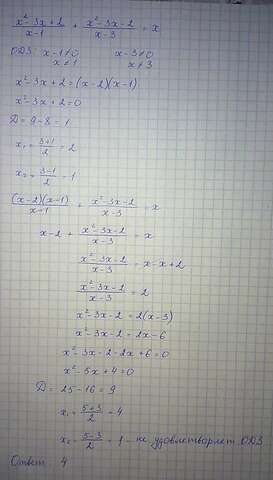 (x²-3x+2)/(x-1) + (x²-3x-2)/(x-3) = x
ОДЗ: x-1≠0 x-3≠0
x≠1 x≠3
x²-3x+2=(x-2)(x-1)
x²-3x+2=0
D=9-8=1
x₁=(3+1)/2=2
x₂=(3-1)/2=1
((x-2)(x-1))/(x-1) + (x²-3x-2)/(x-3) = x
x-2 + (x²-3x-2)/(x-3) = x
(x²-3x-2)/(x-3) = x-x+2
(x²-3x-2)/(x-3) = 2
x²-3x-2=2(x-3)
x²-3x-2=2x-6
x²-3x-2-2x+6=0
x²-5x+4=0
D=25-16=9
x₁=(5+3)/2=4
x₂=(5-3)/2=1 - не удовлетворяет ОДЗ
Ответ 4